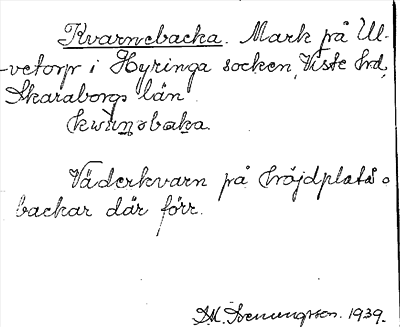 Kvarnebacka. Mark på Ul-
vetorp i Hyringa socken, Viste hrd,
Skaraborgs län.
kwanəbaka
Väderkvarn på höjdplatå o
backar där förr.
1939.